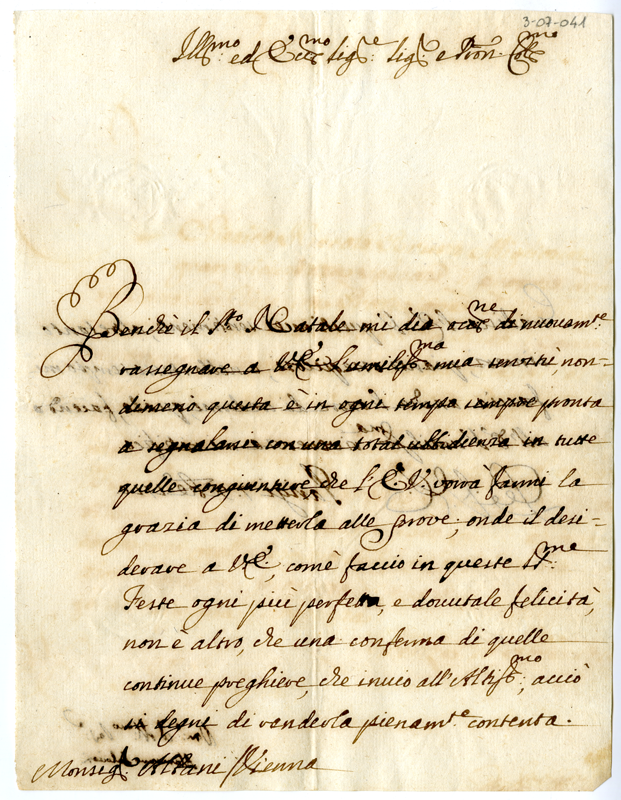 3-07-041
Ill.mo ed Ecc.mo Sig.e Sig.r e Pron. Col.mo
Benche il S.to Natale mi dia occ.ne di nuovam.te
rassegnare a V.E. l'umiliss.ma mia servitù, non-
dimeno questa è in ogni tempo sempre pronta
a segnalarsi con una total ubbidienza in tutte
quelle congiunture che l'E.V. vorrà farmi la
grazia di metterla alle prove, onde il desi-
derare a V.E., come faccio in queste S.me
Feste ogni più perfetta, e dovutale felicità,
non è altro, che una conferma di quelle
continue preghiere, che invio all'Altiss.mo, acciò
si degni di renderla pienam.te contenta.
Monsig.r Albani Vienna